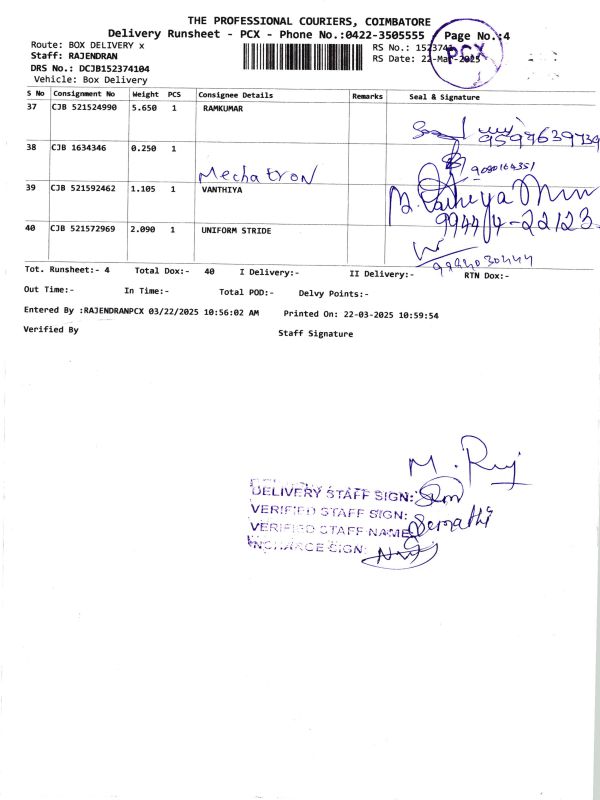 THE PROFESSIONAL COURIERS, COIMBATORE
Delivery Runsheet - PCX - Phone No.:0422-3505555 Page No.:4
Route: BOX DELIVERY x
Staff: RAJENDRAN
DRS No.: DCJB152374104
Vehicle: Box Delivery
RS No.: 1523741
RS Date: 22-Mar-2025
PCX
S No Consignment No Weight PCS Consignee Details Remarks Seal & Signature
37 CJB 521524990 5.650 1 RAMKUMAR
38 CJB 1634346 0.250 1 Mechatron
39 CJB 521592462 1.105 1 VANTHIYA
40 CJB 521572969 2.090 1 UNIFORM STRIDE
9994030444
Tot. Runsheet:- 4 Total Dox:- 40 I Delivery:- II Delivery:- RTN Dox:-
Out Time:- In Time:- Total POD:- Delvy Points:-
Entered By :RAJENDRANPCX 03/22/2025 10:56:02 AM Printed On: 22-03-2025 10:59:54
Verified By Staff Signature
DELIVERY STAFF SIGN:
VERIFIED STAFF SIGN:
VERIFIED STAFF NAME
INCHARGE SIGN: